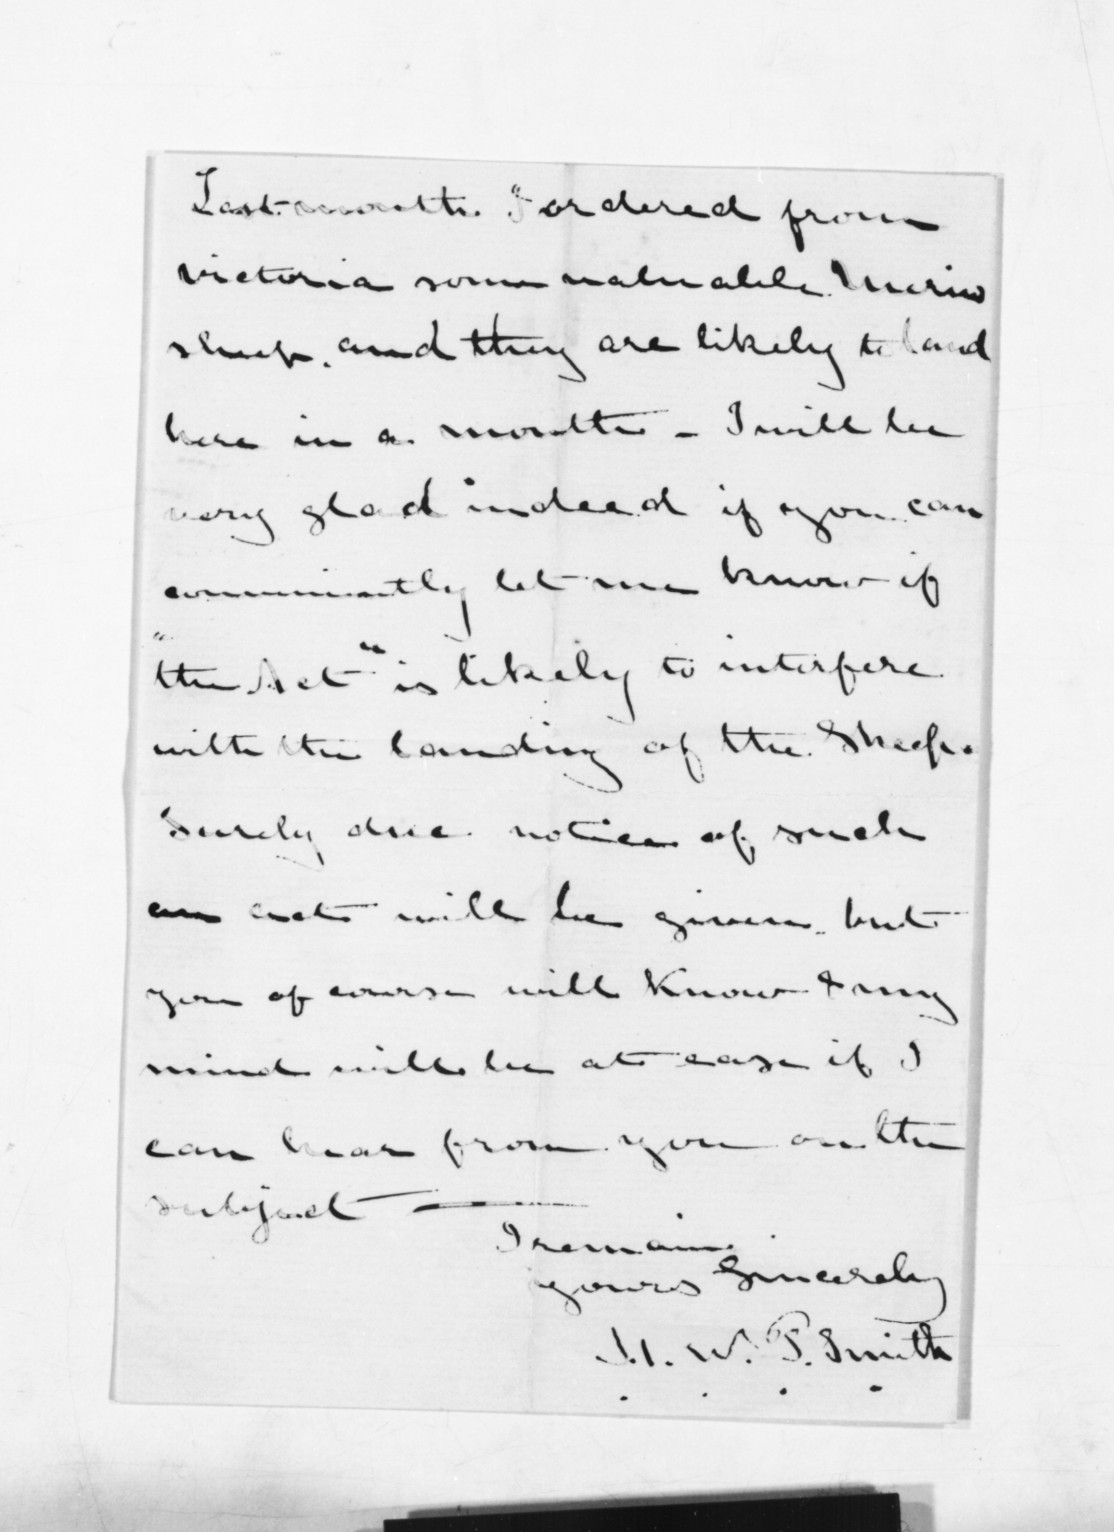 Last month I ordered from
victoria some valuable Merino
sheep. and they are likely to land
here in a month - I will be
very glad indeed if you can
conveniently let me know if
"the Act" is likely to interfere
with the landing of the Sheep.
Surely due notice of such
an act will be given. but
you of course will Know & my
mind will be at ease if I
can hear from you on the
subject —
I remain
yours Sincerely
W. P. Smith